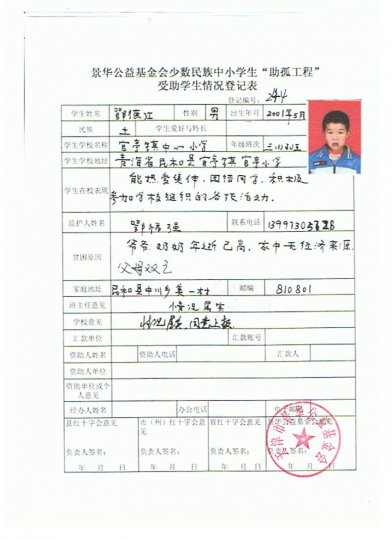 景华公益基金会少数民族中小学生“助孤工程”
受助学生情况登记表
登记编号：244
学生姓名 鄂 江 性别 男 出生年月 2001年5月
民族 土 学生爱好与特长
学生学校名称 官亭镇中心小学 年级班次
学生学校地址 青海省民和县官亭镇官亭小学
学生在校表现 能热爱集体，团结同学，积极
参加学校组织的各项活动。
监护人姓名 鄂 强 联系电话
贫困原因 爷爷，奶奶年近已高，家中无经济来源
父母双亡
家庭地址 民和县中川乡美一村 邮编 810801
班主任意见 情况属实
学校意见 情况属实，同意上报
汇款单位 汇款账号
资助人姓名 资助人电话 汇款人
资助人单位
资助单位或个
人意见
经办人姓名 办公电话 电子邮箱
县红十字会意见 市（州）红十字会意见 省红十字会意见 景华公益基金会意见
负责人签名： 负责人签名： 负责人签名： 负责人签名：
年 月 日 年 月 日 年 月 日 年 月 日